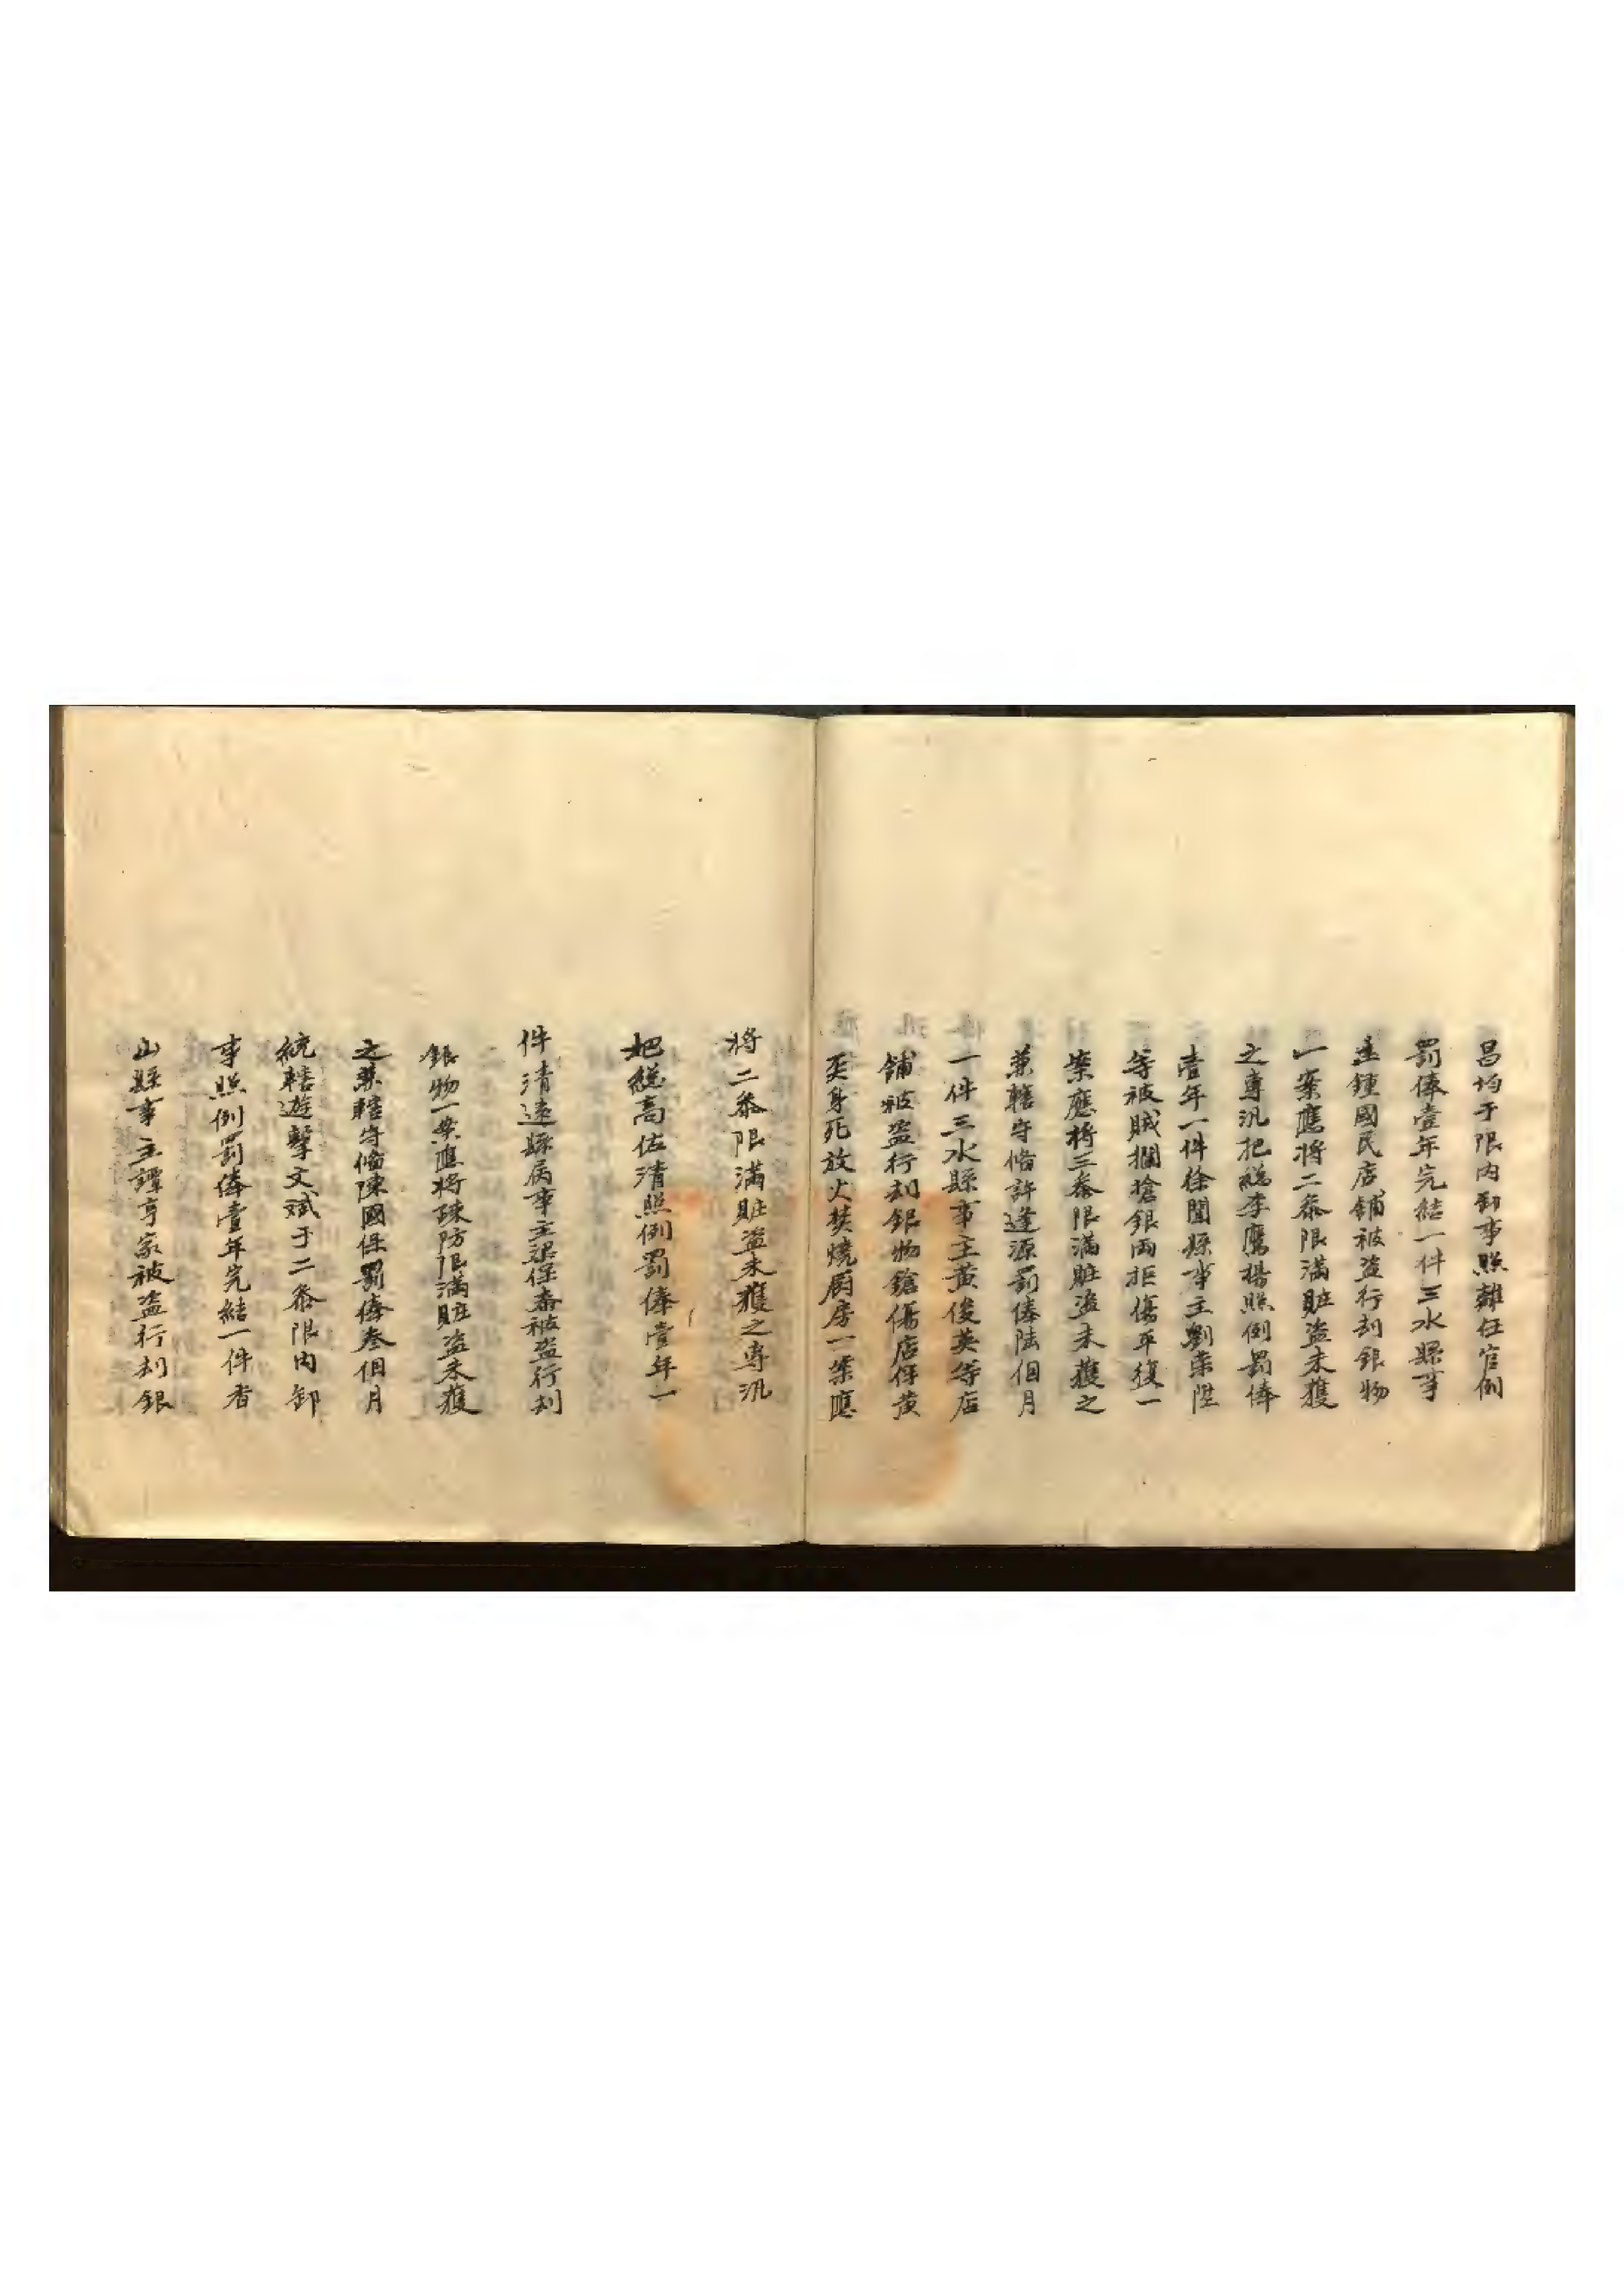 昌均于限内卸事照離任官例
罰俸壹年完結一件三水縣事
主鍾國民店鋪被盜行刦銀物
一案應將二叅限滿賍盜未獲
之專汛把總李鷹揚照例罰俸
壹年一件徐聞縣事主劉宗陞
等被賊攔搶銀兩拒傷平復一
案應將三叅限滿賍盜未獲之
兼轄守備許逢源罰俸陸個月
一件三水縣事主黃俊英等店
鋪被盜行刦銀物鎗傷店伴黃
身死放火焚燒厨房一案應
將二叅限滿賍盜未獲之專汛
把總高佐清照例罰俸壹年一
件清遠縣病事主梁保春被盜行刦
銀物一案應將疎防限滿賍盜未獲
之兼轄守備陳國保罰俸叁個月
統轄遊擊文斌于二叅限内卸
事照例罰俸壹年完結一件香
山縣事主譚亨家被盜行刦銀